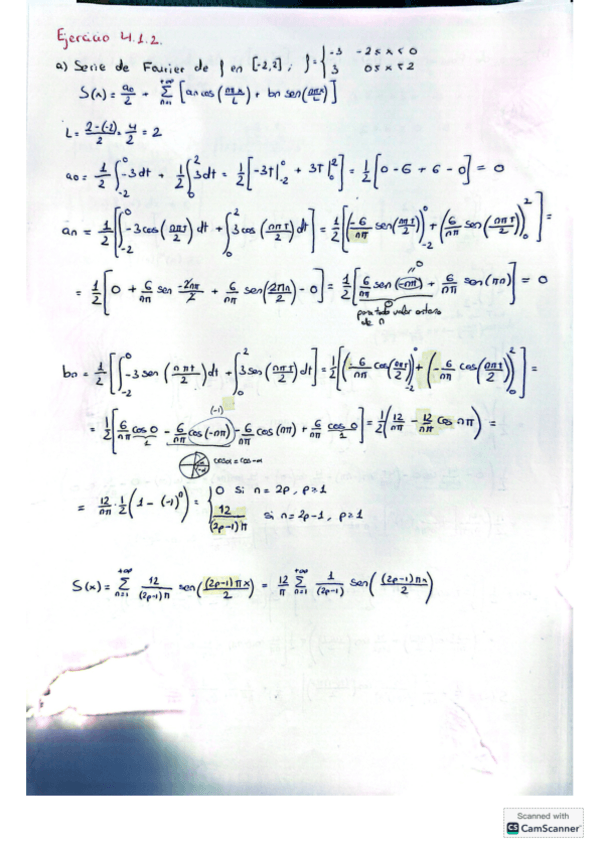 Ejercicio 4.1.2.
a) Serie de Fourier de f en [-2,2]; f = { -3  -2≤x<0
3  0≤x≤2
S(x) = a0/2 + Σ_{n=1}^{+∞} [an cos(nπx/L) + bn sen(nπx/L)]
L = (2-(-2))/2 = 4/2 = 2
a0 = 1/2 ∫_{-2}^{0} -3dt + 1/2 ∫_{0}^{2} 3dt = 1/2 [-3T|_{-2}^{0} + 3T|_{0}^{2}] = 1/2 [0 - 6 + 6 - 0] = 0
an = 1/2 [∫_{-2}^{0} -3cos(nπt/2)dt + ∫_{0}^{2} 3cos(nπt/2)dt] = 1/2 [(-6/nπ sen(nπt/2))_{-2}^{0} + (6/nπ sen(nπt/2))_{0}^{2}] =
= 1/2 [0 + 6/nπ sen -2nπ/2 + 6/nπ sen(2πn/2) - 0] = 1/2 [6/nπ sen(-nπ) + 6/nπ sen(πn)] = 0
0
para todo valor entero de n
bn = 1/2 [∫_{-2}^{0} -3sen(nπt/2)dt + ∫_{0}^{2} 3sen(nπt/2)dt] = 1/2 [(-6/nπ cos(nπt/2))_{-2}^{0} + (-6/nπ cos(nπt/2))_{0}^{2}] =
(-1)
= 1/2 [6/nπ cos0 - 6/nπ cos(-nπ) - 6/nπ cos(nπ) + 6/nπ cos0] = 1/2 (12/nπ - 12/nπ cos nπ) =
1 1
cosα = cos-α
= 12/nπ · 1/2 (1 - (-1)^n) = { 0 si n = 2p, p≥1
12/(2p-1)π si n = 2p-1, p≥1
S(x) = Σ_{n=1}^{+∞} 12/(2p-1)π sen((2p-1)πx/2) = 12/π Σ_{n=1}^{+∞} 1/(2p-1) sen((2p-1)πx/2)
Scanned with
CS CamScanner